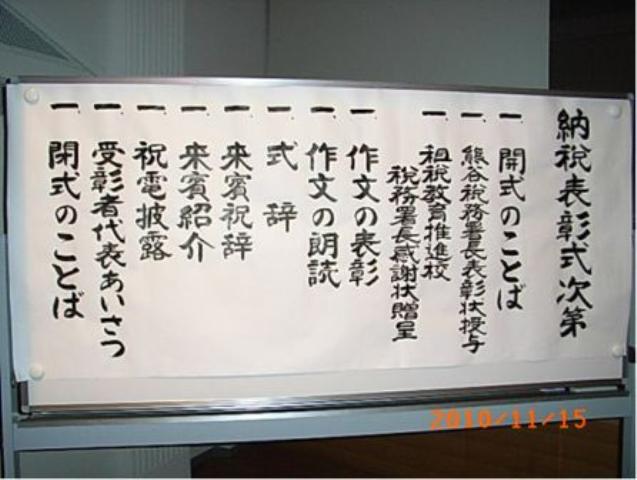 納税表彰式次第
一 開式のことば
一 熊谷税務署長表彰状授与
一 租税教育推進校
税務署長感謝状贈呈
一 作文の表彰
一 作文の朗読
一 式辞
一 来賓祝辞
一 来賓紹介
一 祝電披露
一 受彰者代表あいさつ
一 閉式のことば
2010/11/15